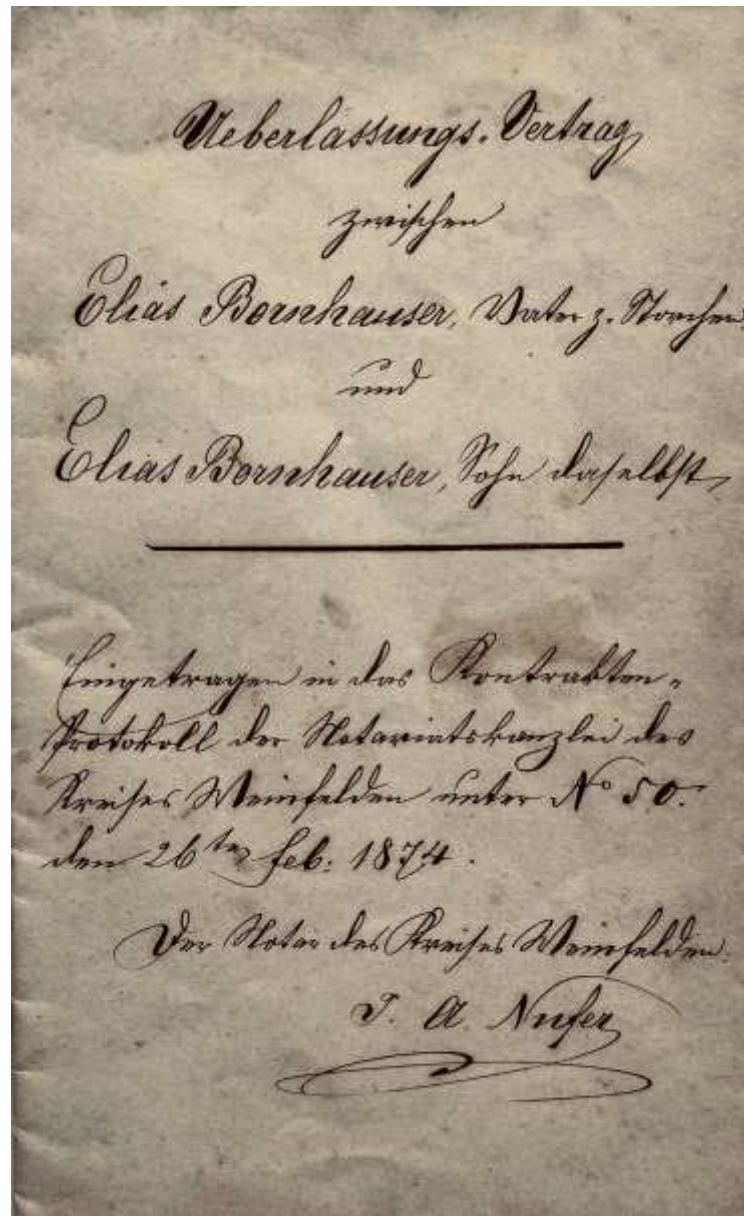 Ueberlassungs-Vertrag
zwischen
Elias Bornhauser, Vater z. Storchen
und
Elias Bornhauser, Sohn daselbst,
Eingetragen in das Kontrakten-
Protokoll der Notariatskanzlei des
Kreises Weinfelden unter No 50.
den 26ten Feb: 1874.
Der Notar des Kreises Weinfelden:
J. A. Nufer